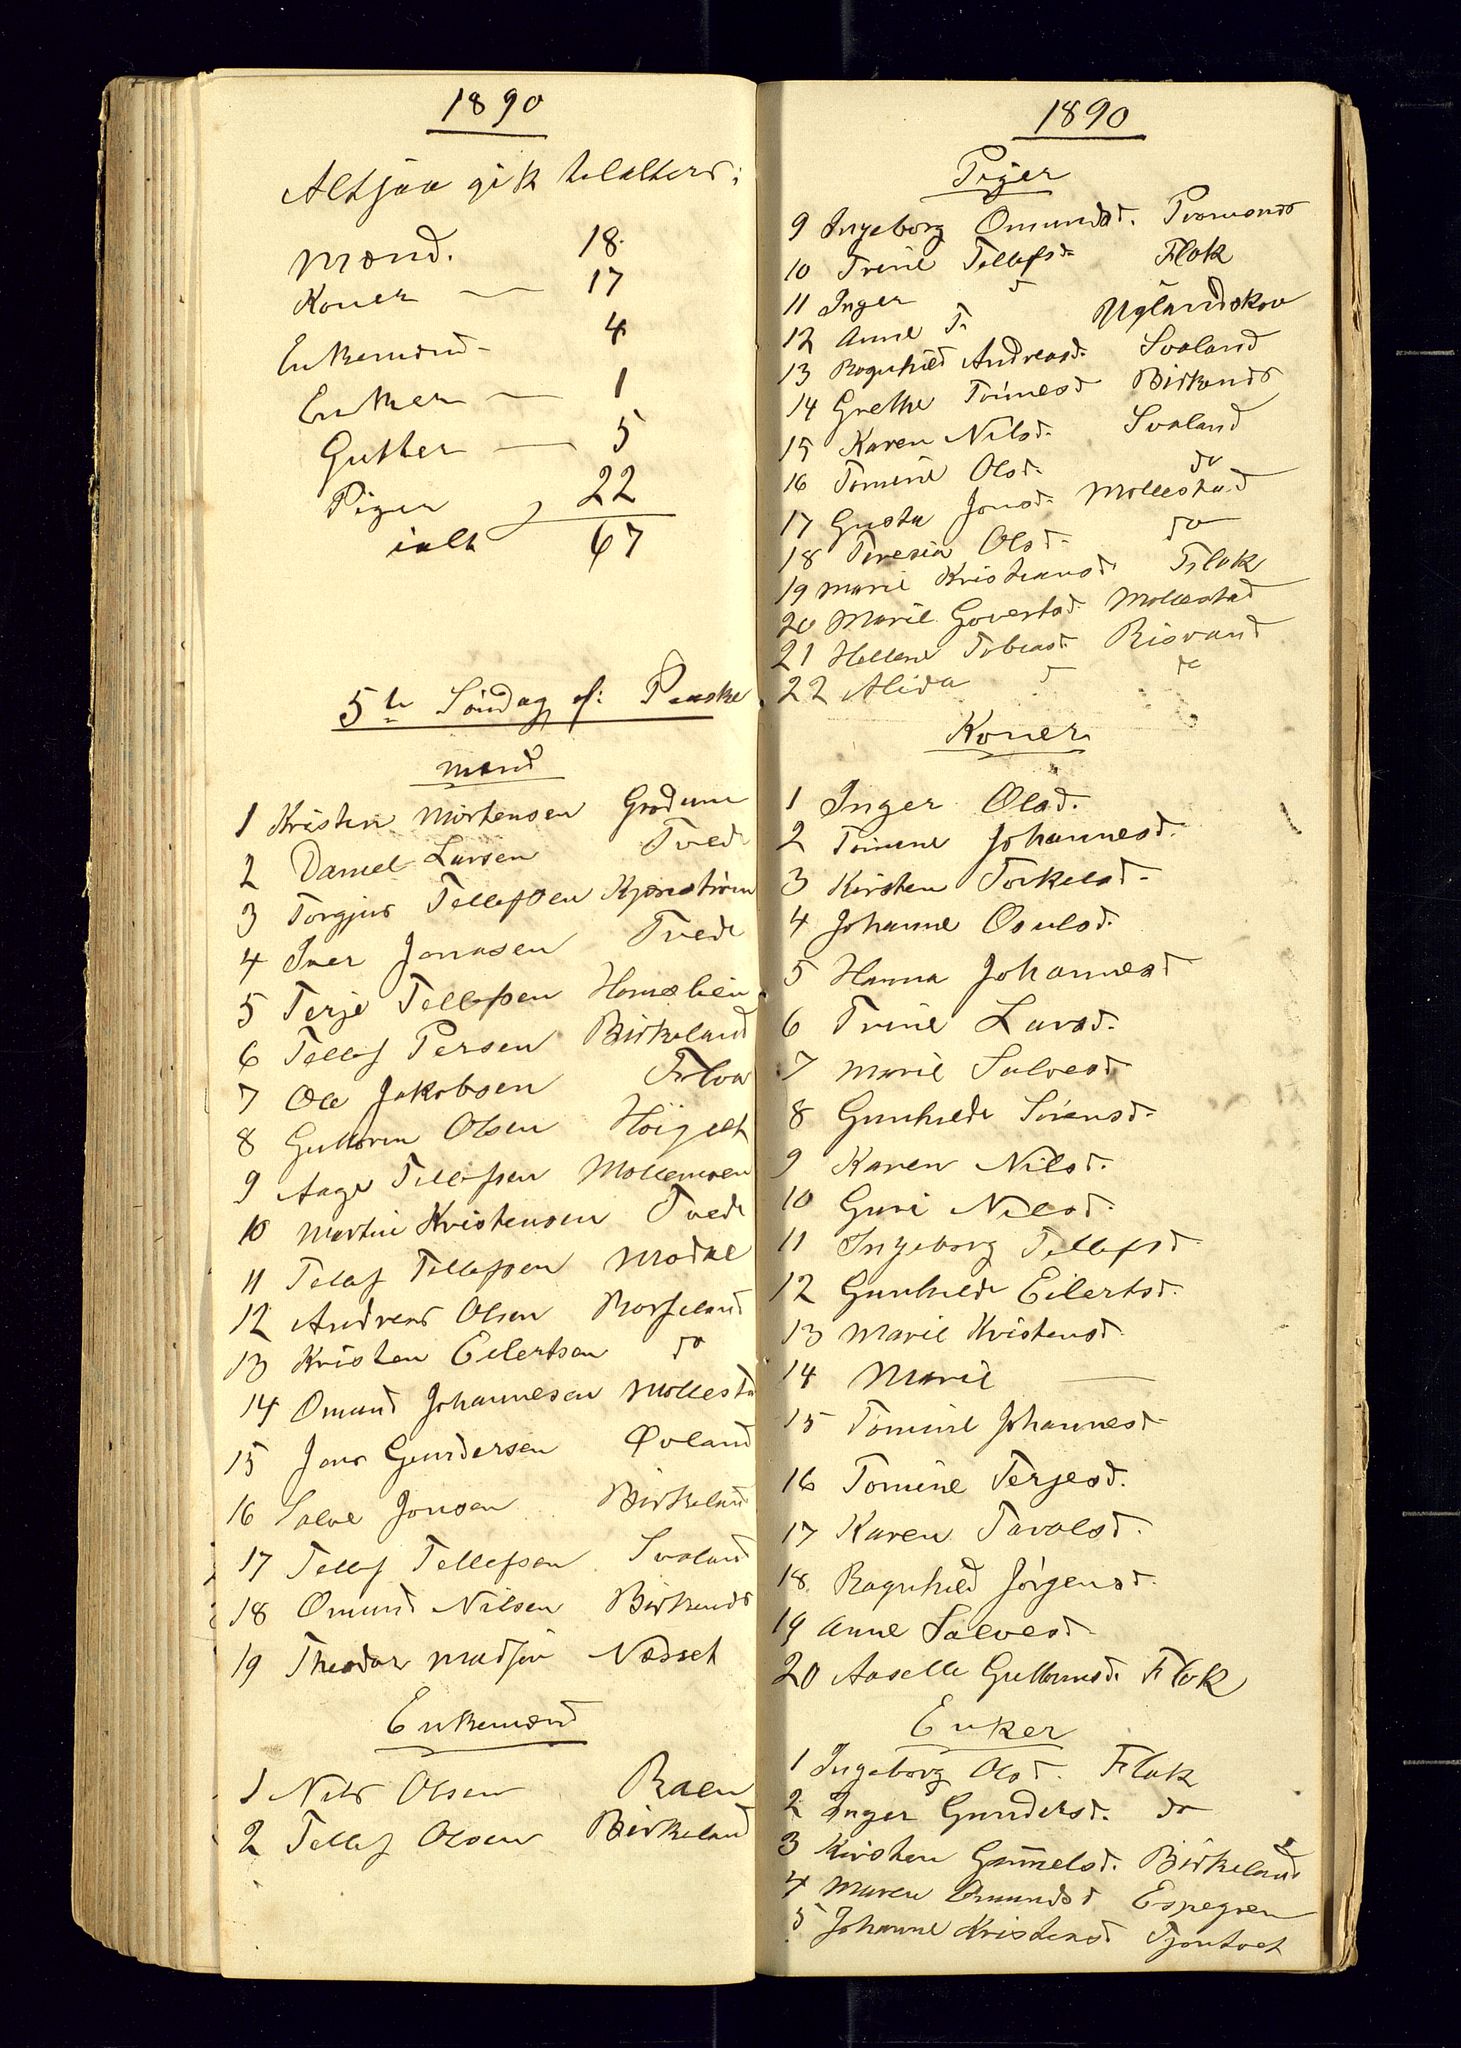 1890
Altsaa gik tilalters:
Mænd. 18.
Koner — 17
Enkemænd - 4
Enker — 1
Gutter — 5
Piger 22
ialt 67
5te Søndag ef: Paaske
Mænd
1 Kristen Mortensen Grødum
2 Daniel Larsen Tvede
3 Torgjus Tellefsen
4 Iver Jonasen Tvede
5 Terje Tellefsen
6 Tellef Persen Birkeland
7 Ole Jakobsen
8 Guttorm Olsen
9 Aage Tellefsen Mollemoen
10 Martin Kristensen Tvede
11 Tellef Tellefsen Modal
12 Andreas Olsen
13 Kristen Eilertsen do
14 Omund Johannesen Mollestad
15 Jens Gundersen Øvland
16 Salve Jonsen Birkeland
17 Tellef Tellefsen Svaland
18 Omund Nilsen Birkends
19 Theodor Madsen Næsset
Enkemænd
1 Nils Olsen Raen
2 Tellef Olsen Birkeland
1890
Piger
9 Ingeborg Omundsd.
10 Trine Tellefsd. Flak
11 Inger
12 Anne T. Uglandskov
13 Ragnhild Andreasd. Svaland
14 Grethe Tønnesd Birkends
15 Karen Nilsd. Svaland
16 Tomine Olsd. do
17 Gusta Jensd. Mollestad
18 Teresia Olsd. do
19 Marie Kristiansd. Flak
20 Marie Govertsd. Mollestad
21 Hellene Tobiasd. Risvand
22 Alida do
Koner
1 Inger Olsd.
2 Tomine Johannesd.
3 Kirsten Torkelsd.
4 Johanne Osulsd.
5 Hanna Johannesd
6 Trine Larsd.
7 Marie Salvesd
8 Gunhilde Sørensd.
9 Karen Nilsd.
10 Guri Nilsd.
11 Ingeborg Tellefsd
12 Gunhilde Eilertsd.
13 Marie Kristensd.
14 Marie —
15 Tomine Johannesd
16 Tomine Terjesd.
17 Karen Tavalsd.
18 Ragnhild Jørgensd.
19 Anne Salvesd
20 Aaselle Guttormsd. Flak
Enker
1 Ingeborg Olsd. Flak
2 Inger Gundersd. do
3 Kirsten Gunnelsd. Birkeland
4 Maren Omundsd Espegren
5 Johanne Kristensd Tjontvet